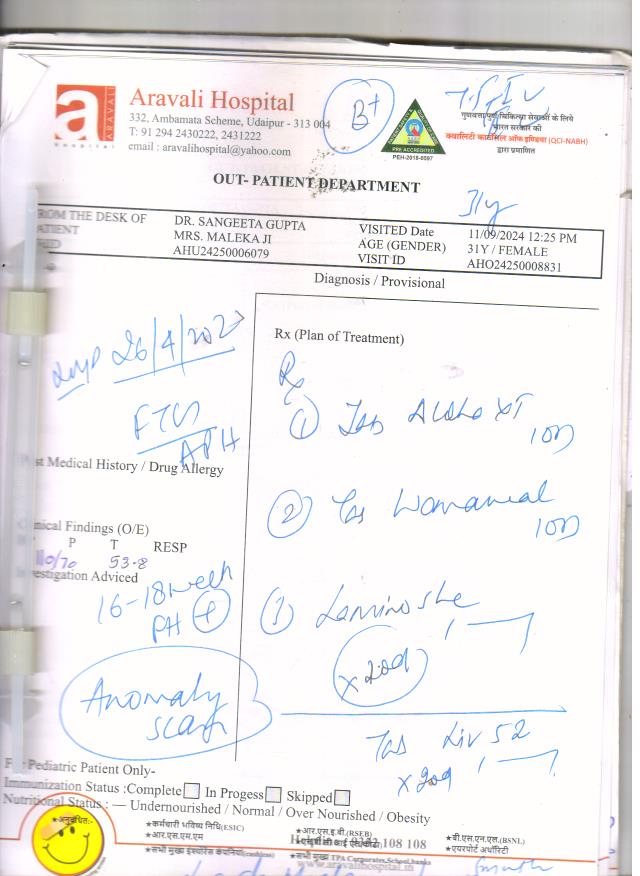 Aravali Hospital
332, Ambamata Scheme, Udaipur - 313 004
T: 91 294 2430222, 2431222
email : aravalihospital@yahoo.com
a
ARAVALI
hospital
B+
PRE ACCREDITED
PEH-2018-0697
गुणवत्तापूर्ण चिकित्सा सेवाओं के लिये
भारत सरकार की
क्वालिटी काउंसिल ऑफ इण्डिया (QCI-NABH)
द्वारा प्रमाणित
OUT- PATIENT DEPARTMENT
31y
FROM THE DESK OF DR. SANGEETA GUPTA VISITED Date 11/09/2024 12:25 PM
ATIENT MRS. MALEKA JI AGE (GENDER) 31Y / FEMALE
HID AHU24250006079 VISIT ID AHO24250008831
Diagnosis / Provisional
LMP 26/4/202
Rx (Plan of Treatment)
Rx
① Tab XT
10D
st Medical History / Drug Allergy
② Tab
10D
nical Findings (O/E)
P T RESP
110/70 53-8
estigation Advised
16-18 week
PH +
x 20d
Anomaly
scan
Tab Liv 52
x 20d
For Pediatric Patient Only-
Immunization Status :Complete In Progess Skipped
Nutritional Status : — Undernourished / Normal / Over Nourished / Obesity
★अनुबंधित:-
★कर्मचारी भविष्य निधि(ESIC) ★आर.एस.इ.बी.(RSEB) ★बी.एस.एन.एल.(BSNL)
★आर.एस.एम.एम 108 108 ★एयरपोर्ट अथॉरिटी
★सभी मुख्य इंश्योरेंस कंपनियां(cashless) ★सभी मुख्य TPA Corporates,School,banks
www.aravalihospital.in